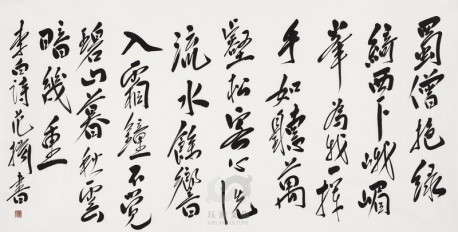 蜀僧抱綠
綺西下峨嵋
峯為我一揮
手如聽萬
壑松客心洗
流水餘響
入霜鐘不覺
碧山暮秋雲
暗幾重
李白詩范書